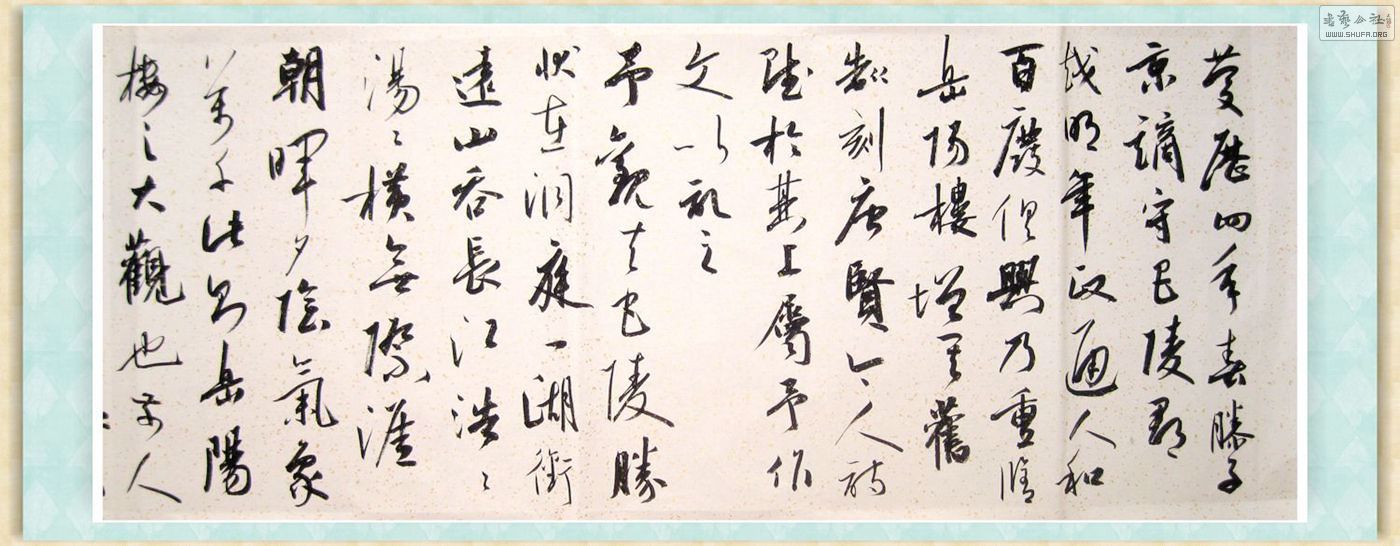 慶歷四年春滕子
京謫守巴陵郡
越明年政通人和
百廢俱興乃重脩
岳陽樓增其舊
製刻唐賢今人詩
賦於其上屬予作
文以記之
予觀夫巴陵勝
狀在洞庭一湖銜
遠山吞長江浩〻
湯〻橫無際涯
朝暉夕陰氣象
萬千此則岳陽
樓之大觀也前人
書藝公社
WWW.SHUFA.ORG